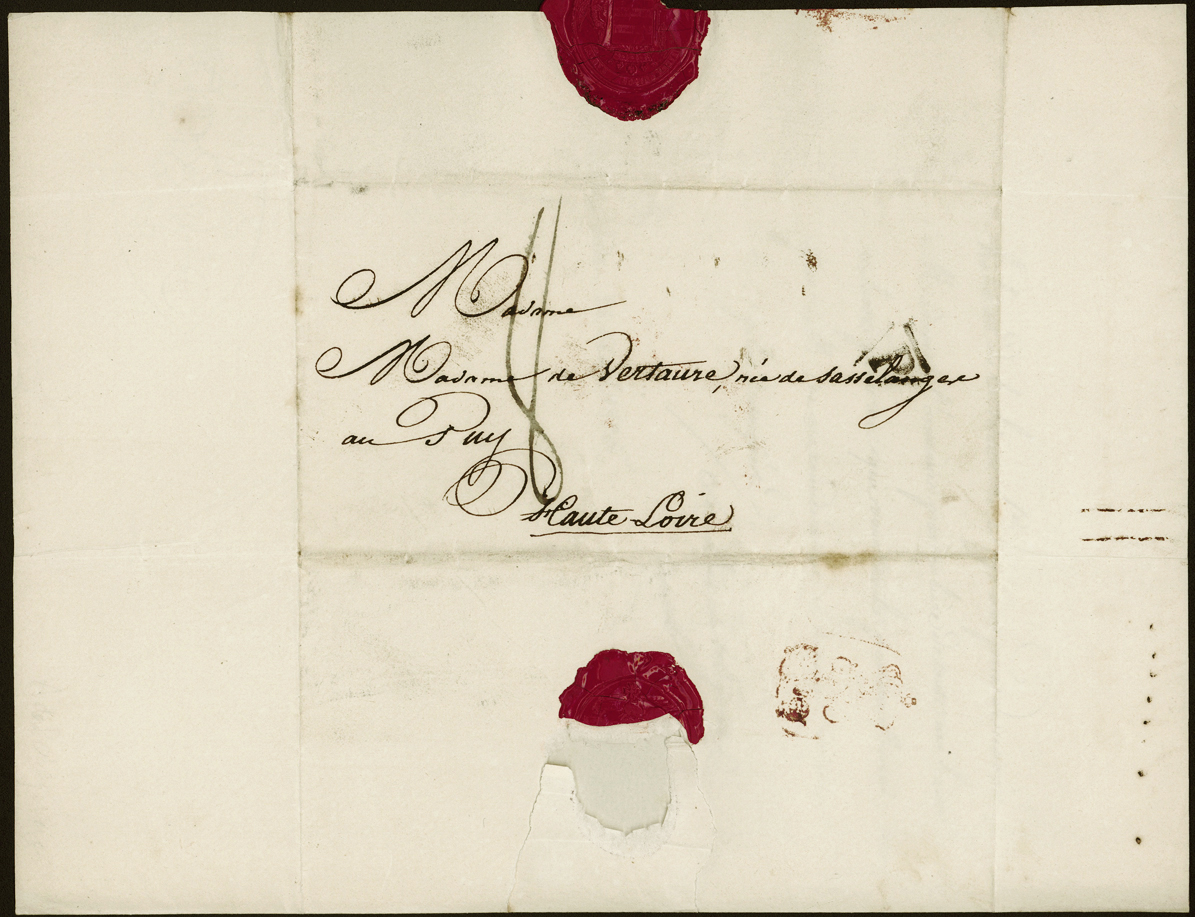 Madame
Madame de Vertaure, née de Sasselanges
au Puy
Haute-Loire